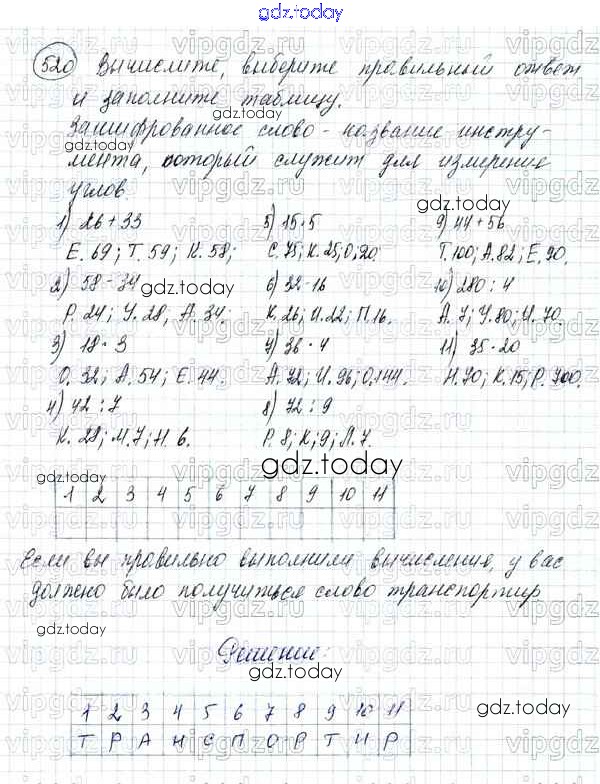 gdz.today
520 Вычислите, выберите правильный ответ
и заполните таблицу.
Зашифрованное слово - название инстру-
мента, который служит для измерения
углов.
1) 26+33
Е. 69; Т. 59; К. 58;
2) 58-34
Р. 24; У. 28; А. 34.
3) 18·3
О. 32; А. 54; Е. 44.
4) 42:7
К. 28; М. 7; Н. 6.
5) 15·5
С. 75; К. 25; О; 20.
6) 32-16
К. 26; И. 22; П. 16.
7) 36·4
А. 72; И. 96; О. 144.
8) 72:9
Р. 8; К; 9; Л. 7.
9) 44+56
Т. 100; А. 82; Е. 90.
10) 280:4
А. 7; У. 80; И. 70.
11) 35·20
Н. 70; К. 15; Р. 700.
1 2 3 4 5 6 7 8 9 10 11
Если вы правильно выполнили вычисления, у вас
должно было получиться слово транспортир
Решение:
1 2 3 4 5 6 7 8 9 10 11
Т Р А Н С П О Р Т И Р